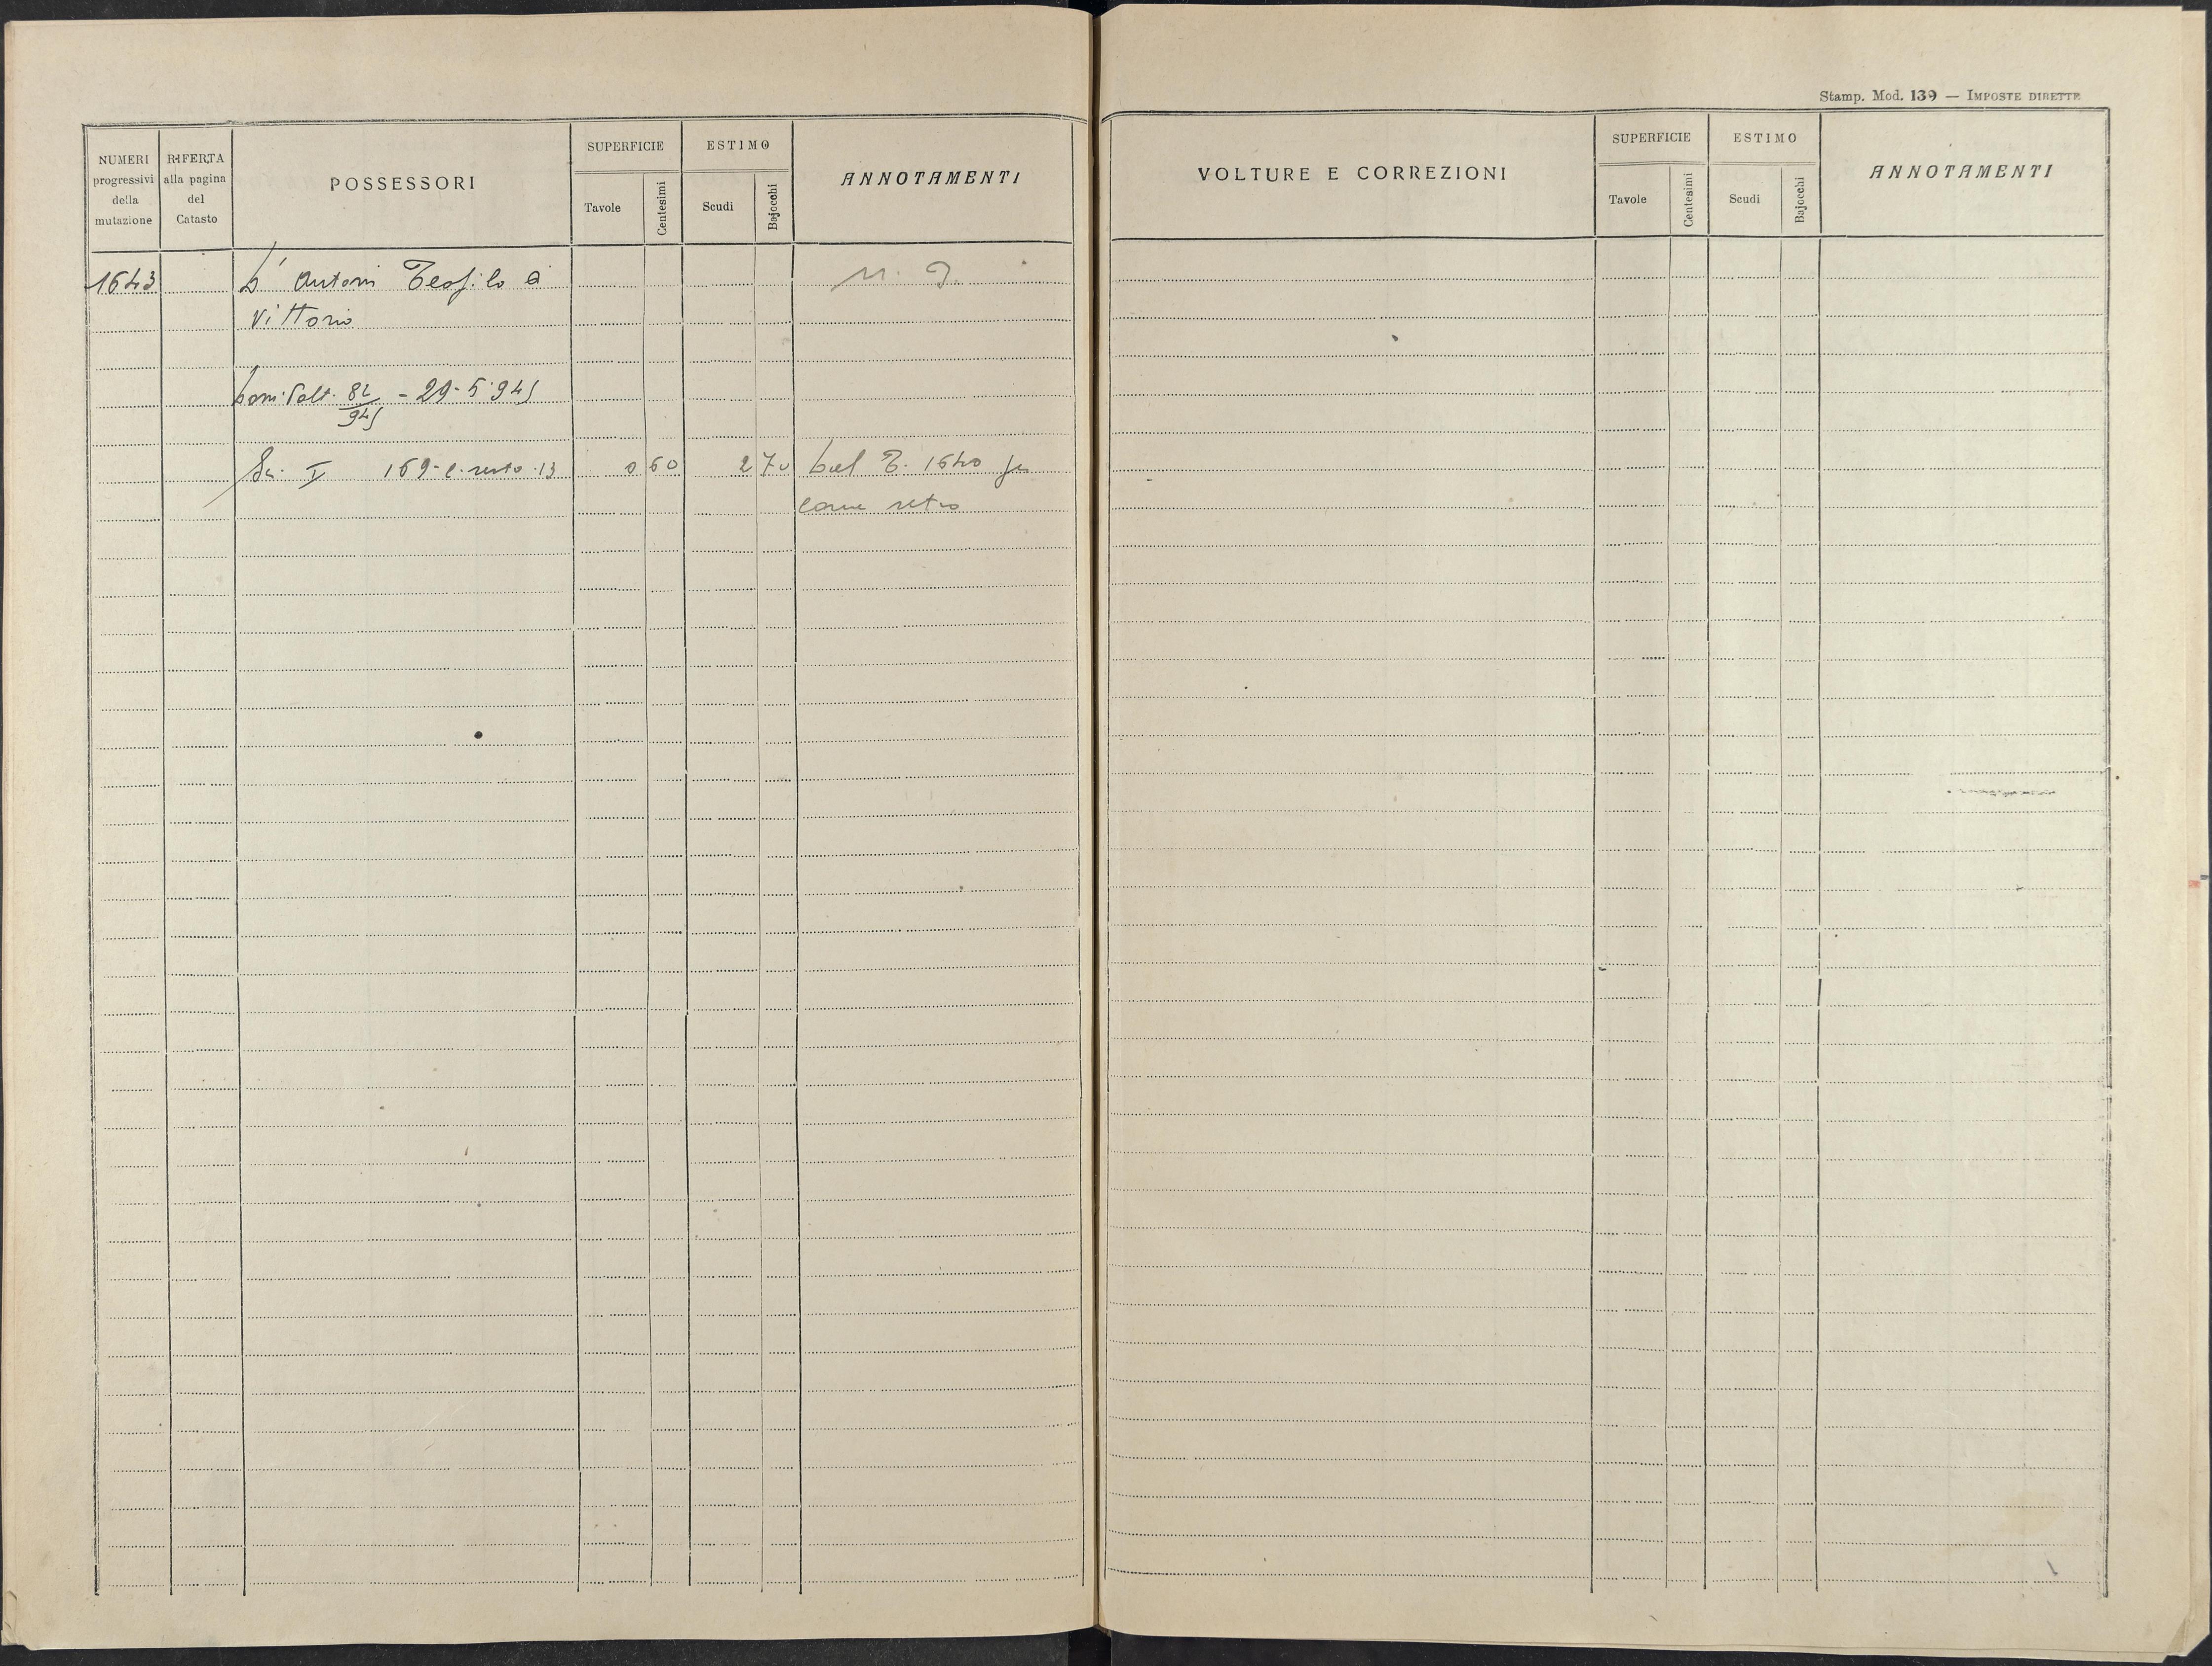 Stamp. Mod. 139 — IMPOSTE DIRETTE
NUMERI progressivi della mutazione
RIFERTA alla pagina del Catasto
POSSESSORI
SUPERFICIE
Tavole
Centesimi
ESTIMO
Scudi
Bajocchi
ANNOTAMENTI
1643 D'Antoni Teofilo di
Vittorio
Volt. 82/945 - 29-5-945
V 169 resto 13 0 60 2 70 Dal 1640
come retro
VOLTURE E CORREZIONI
SUPERFICIE
Tavole
Centesimi
ESTIMO
Scudi
Bajocchi
ANNOTAMENTI